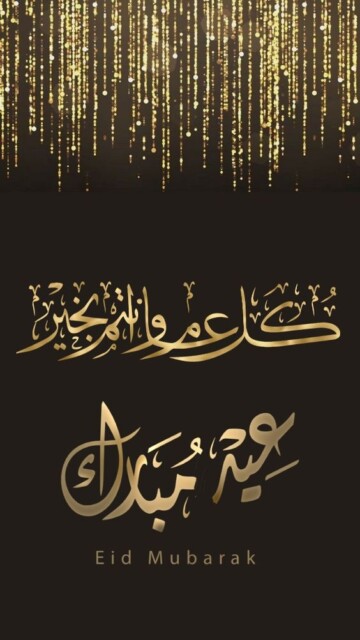 كل عام وانتم بخير
عيد مبارك
Eid Mubarak